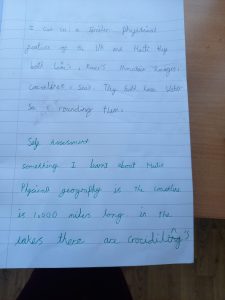 I can see a similar physical
features of the UK and Haiti they
both have, Rivers Mountain Ranges,
coastlines, seas. They both have Water
Su rounding them.
Self Assessment
something I learnt about Haitis
Physical geography is the coastline
is 1,000 miles long in the
lakes there are crocodiles